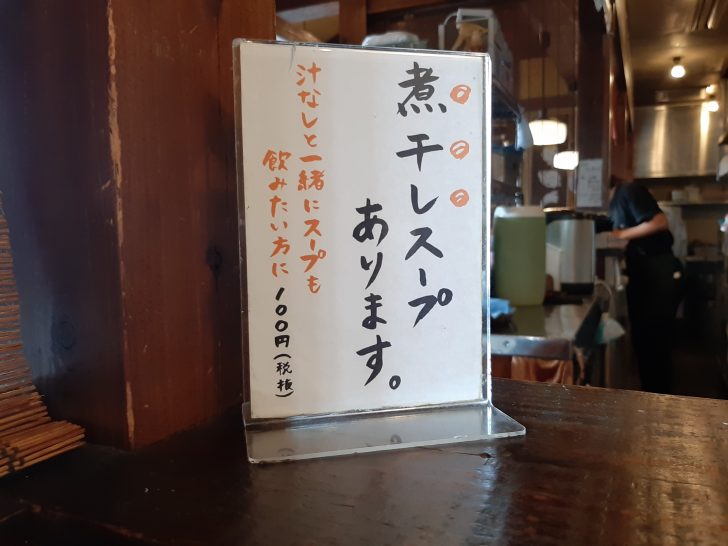 煮干しスープ
あります。
汁なしと一緒にスープも
飲みたい方に100円(税抜)